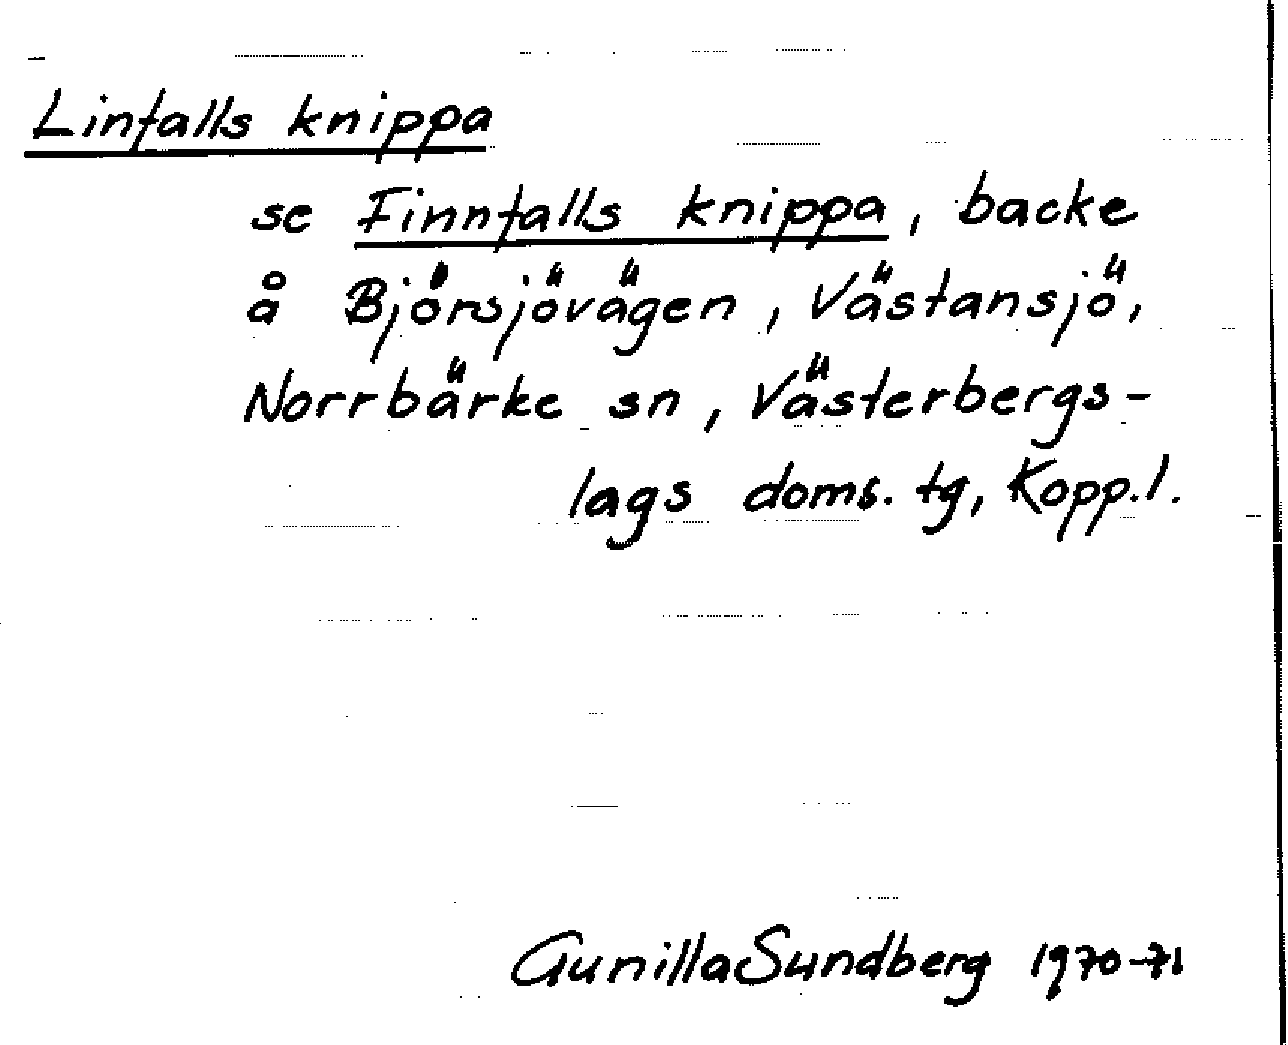 Linfalls knippa
se Finnfalls knippa, backe
å Björsjövägen, Västansjö,
Norrbärke sn, Västerbergs-
lags doms. tg, Kopp.l.
Gunilla Sundberg 1970-71